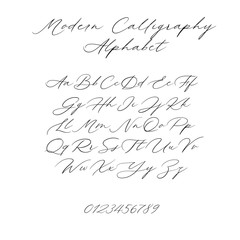 Modern Calligraphy
Alphabet
Aa Bb Cc Dd Ee Ff
Gg Hh Ii Jj Kk
Ll Mm Nn Oo Pp
Qq Rr Ss Tt Uu Vv
Ww Xx Yy Zz
0123456789